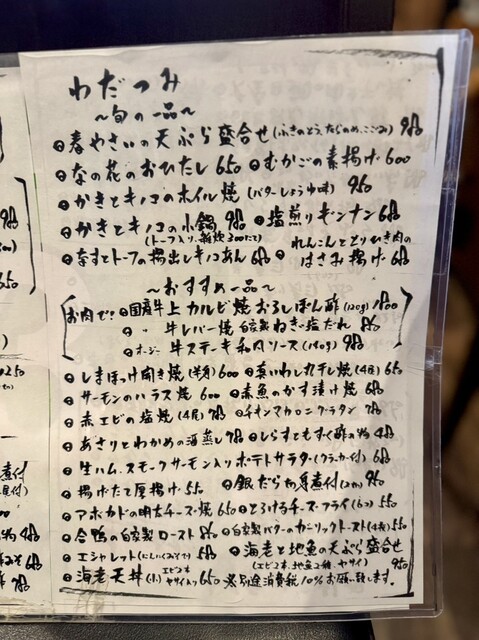 わだつみ
～旬の一品～
春やさいの天ぷら盛合せ(ふきのとう、たらのめ、こごみ) 980
なの花のおひたし 650 むかごの素揚げ 600
かきとキノコのホイル焼 (バターしょうゆ味) 950
かきとキノコの小鍋 980 塩煎りギンナン 680
(トーフ入り、雑炊300にて)
れんこんとどりひき肉の
なすとトーフの揚出しキノコあん 680 はさみ揚げ 680
～おすすめ一品～
お肉で!! 国産牛上カルビ焼 おろしぽん酢 (120g) 1800
〃 牛レバー焼 自家製ねぎ塩だれ 850
オージー牛ステーキ 和風ソース (150g) 980
しまほっけ開き焼 (半身) 600 真いわし丸干し焼 (4尾) 650
サーモンのハラス焼 600 赤魚のかす漬け焼 680
赤エビの塩焼 (4尾) 780 チキンマカロニグラタン 780
あさりとわかめの酒蒸し 780 しらすともずく酢の物 480
生ハム、スモークサーモン入りポテトサラダ (クラッカー付) 680
揚げたて厚揚げ 550 銀だらカマ煮付 (2コ) 950
アボカドの明太チーズ焼 650 とろけるチーズフライ (6コ) 550
合鴨の自家製ロースト 850 自家製バターのガーリックトースト (4枚) 550
エシャレット (にんにくみそで) 580 海老と地魚の天ぷら盛合せ
(エビ2本、地魚2種、ヤサイ) 950
海老天丼 (小) エビ2本 ヤサイ入り 650 ※別途消費税10%お願い致します。